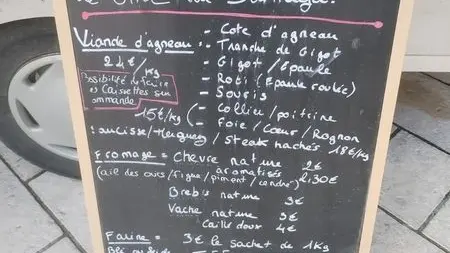 Viande d'agneau :
- Cote d'agneau
- Tranche de Gigot
24€/kg
- Gigot / Epaule
- Roti (Epaule roulée)
- Souris
Possibilité de faire
des Caissettes sur
commande
15€/kg
- Collier / poitrine
- Foie / Coeur / Rognon
Saucisse / Merguez / Steak hachés 18€/kg
Fromage = Chevre nature 2€
aromatisés 2,30€
(ail des ours / figue / piment / cendré)
Brebis nature 3€
Vache nature 3€
Caillé doux 4€
Farine = 3€ le sachet de 1Kg